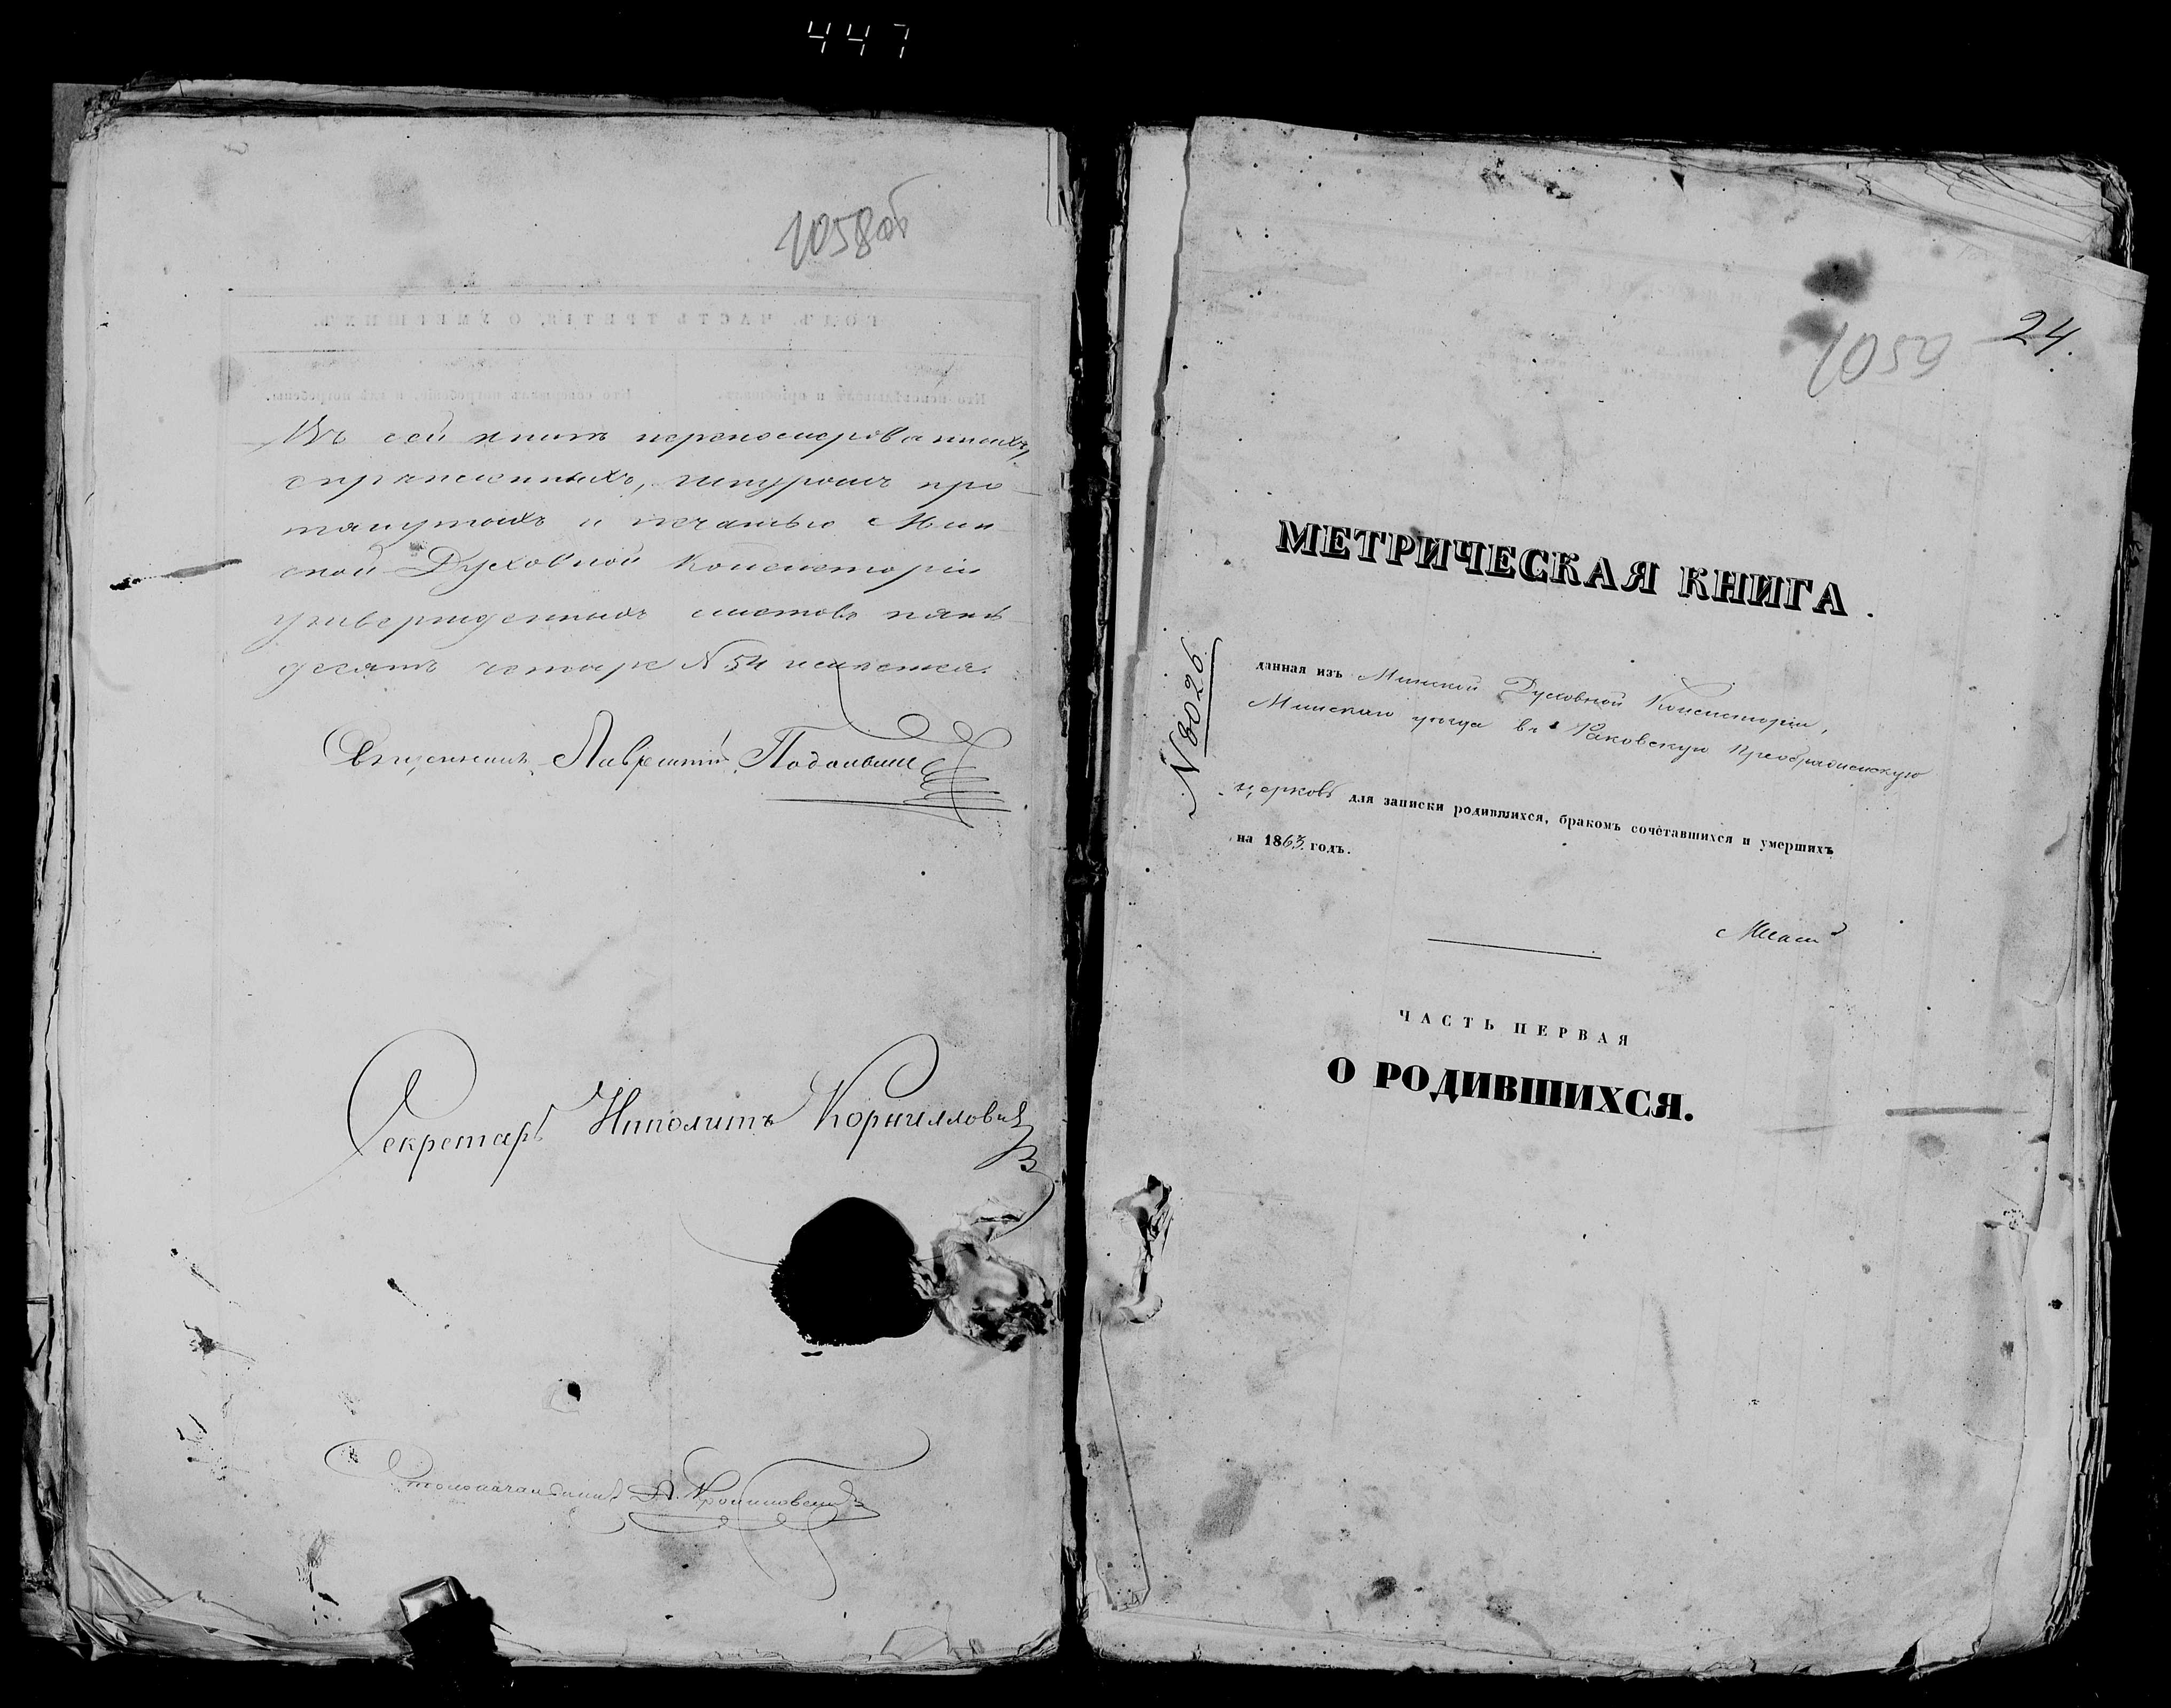 447
1058об
ГОДЪ, ЧАСТЬ ТРЕТІЯ, О УМЕРШИХЪ.
Кто исповѣдывалъ и пріобщалъ.
Кто совершалъ погребеніе, и гдѣ погребены.
Въ сей книгѣ перенумерованныхъ,
скрѣпленныхъ, шнуромъ про
тянутыхъ и печатью Мин
ской Духовной Консисторіи
утвержденныхъ листовъ пять
десятъ четыре N 54 имѣется.
Священникъ Лаврентій
Секретарь Ипполитъ Корниллович
Столоначальникъ
24.
1059
МЕТРИЧЕСКАЯ КНИГА.
N 8026
данная изъ Минской Духовной Консисторіи,
Минскаго уѣзда въ Раковскую Преображенскую
церковь для записки родившихся, бракомъ сочетавшихся и умершихъ
на 1863 годъ.
ЧАСТЬ ПЕРВАЯ
О РОДИВШИХСЯ.